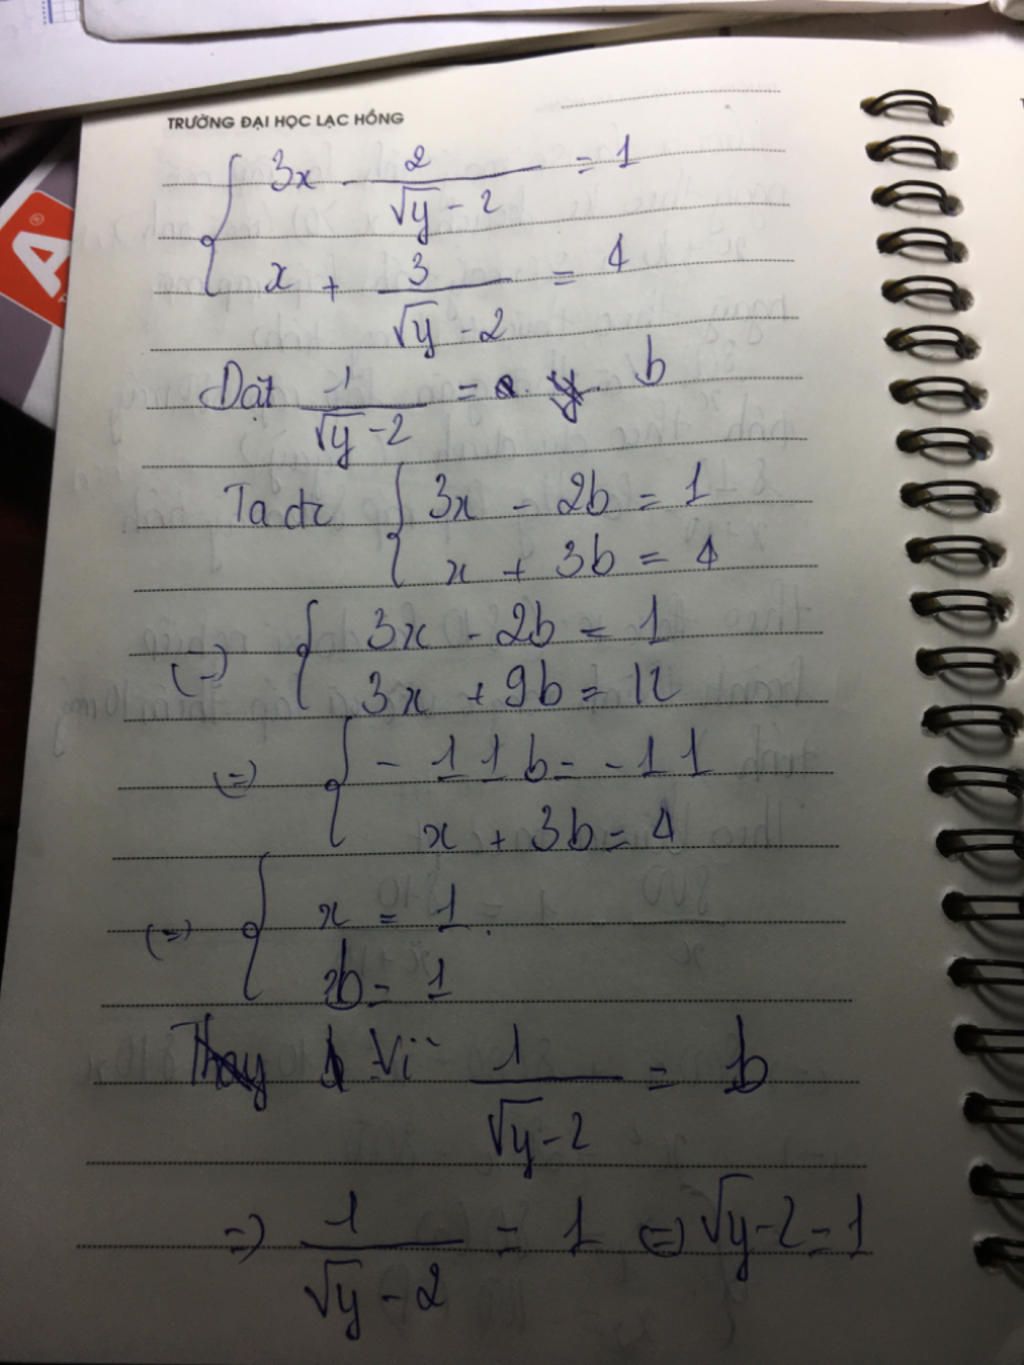 TRƯỜNG ĐẠI HỌC LẠC HỒNG
3x - 2/(√y - 2) = 1
x + 3/(√y - 2) = 4
Đặt 1/(√y - 2) = b
Ta đc { 3x - 2b = 1
x + 3b = 4
(=) { 3x - 2b = 1
3x + 9b = 12
(=) { -11b = -11
x + 3b = 4
(=) { x = 1
b = 1
Vì 1/(√y - 2) = b
=) 1/(√y - 2) = 1 (=) √y - 2 = 1